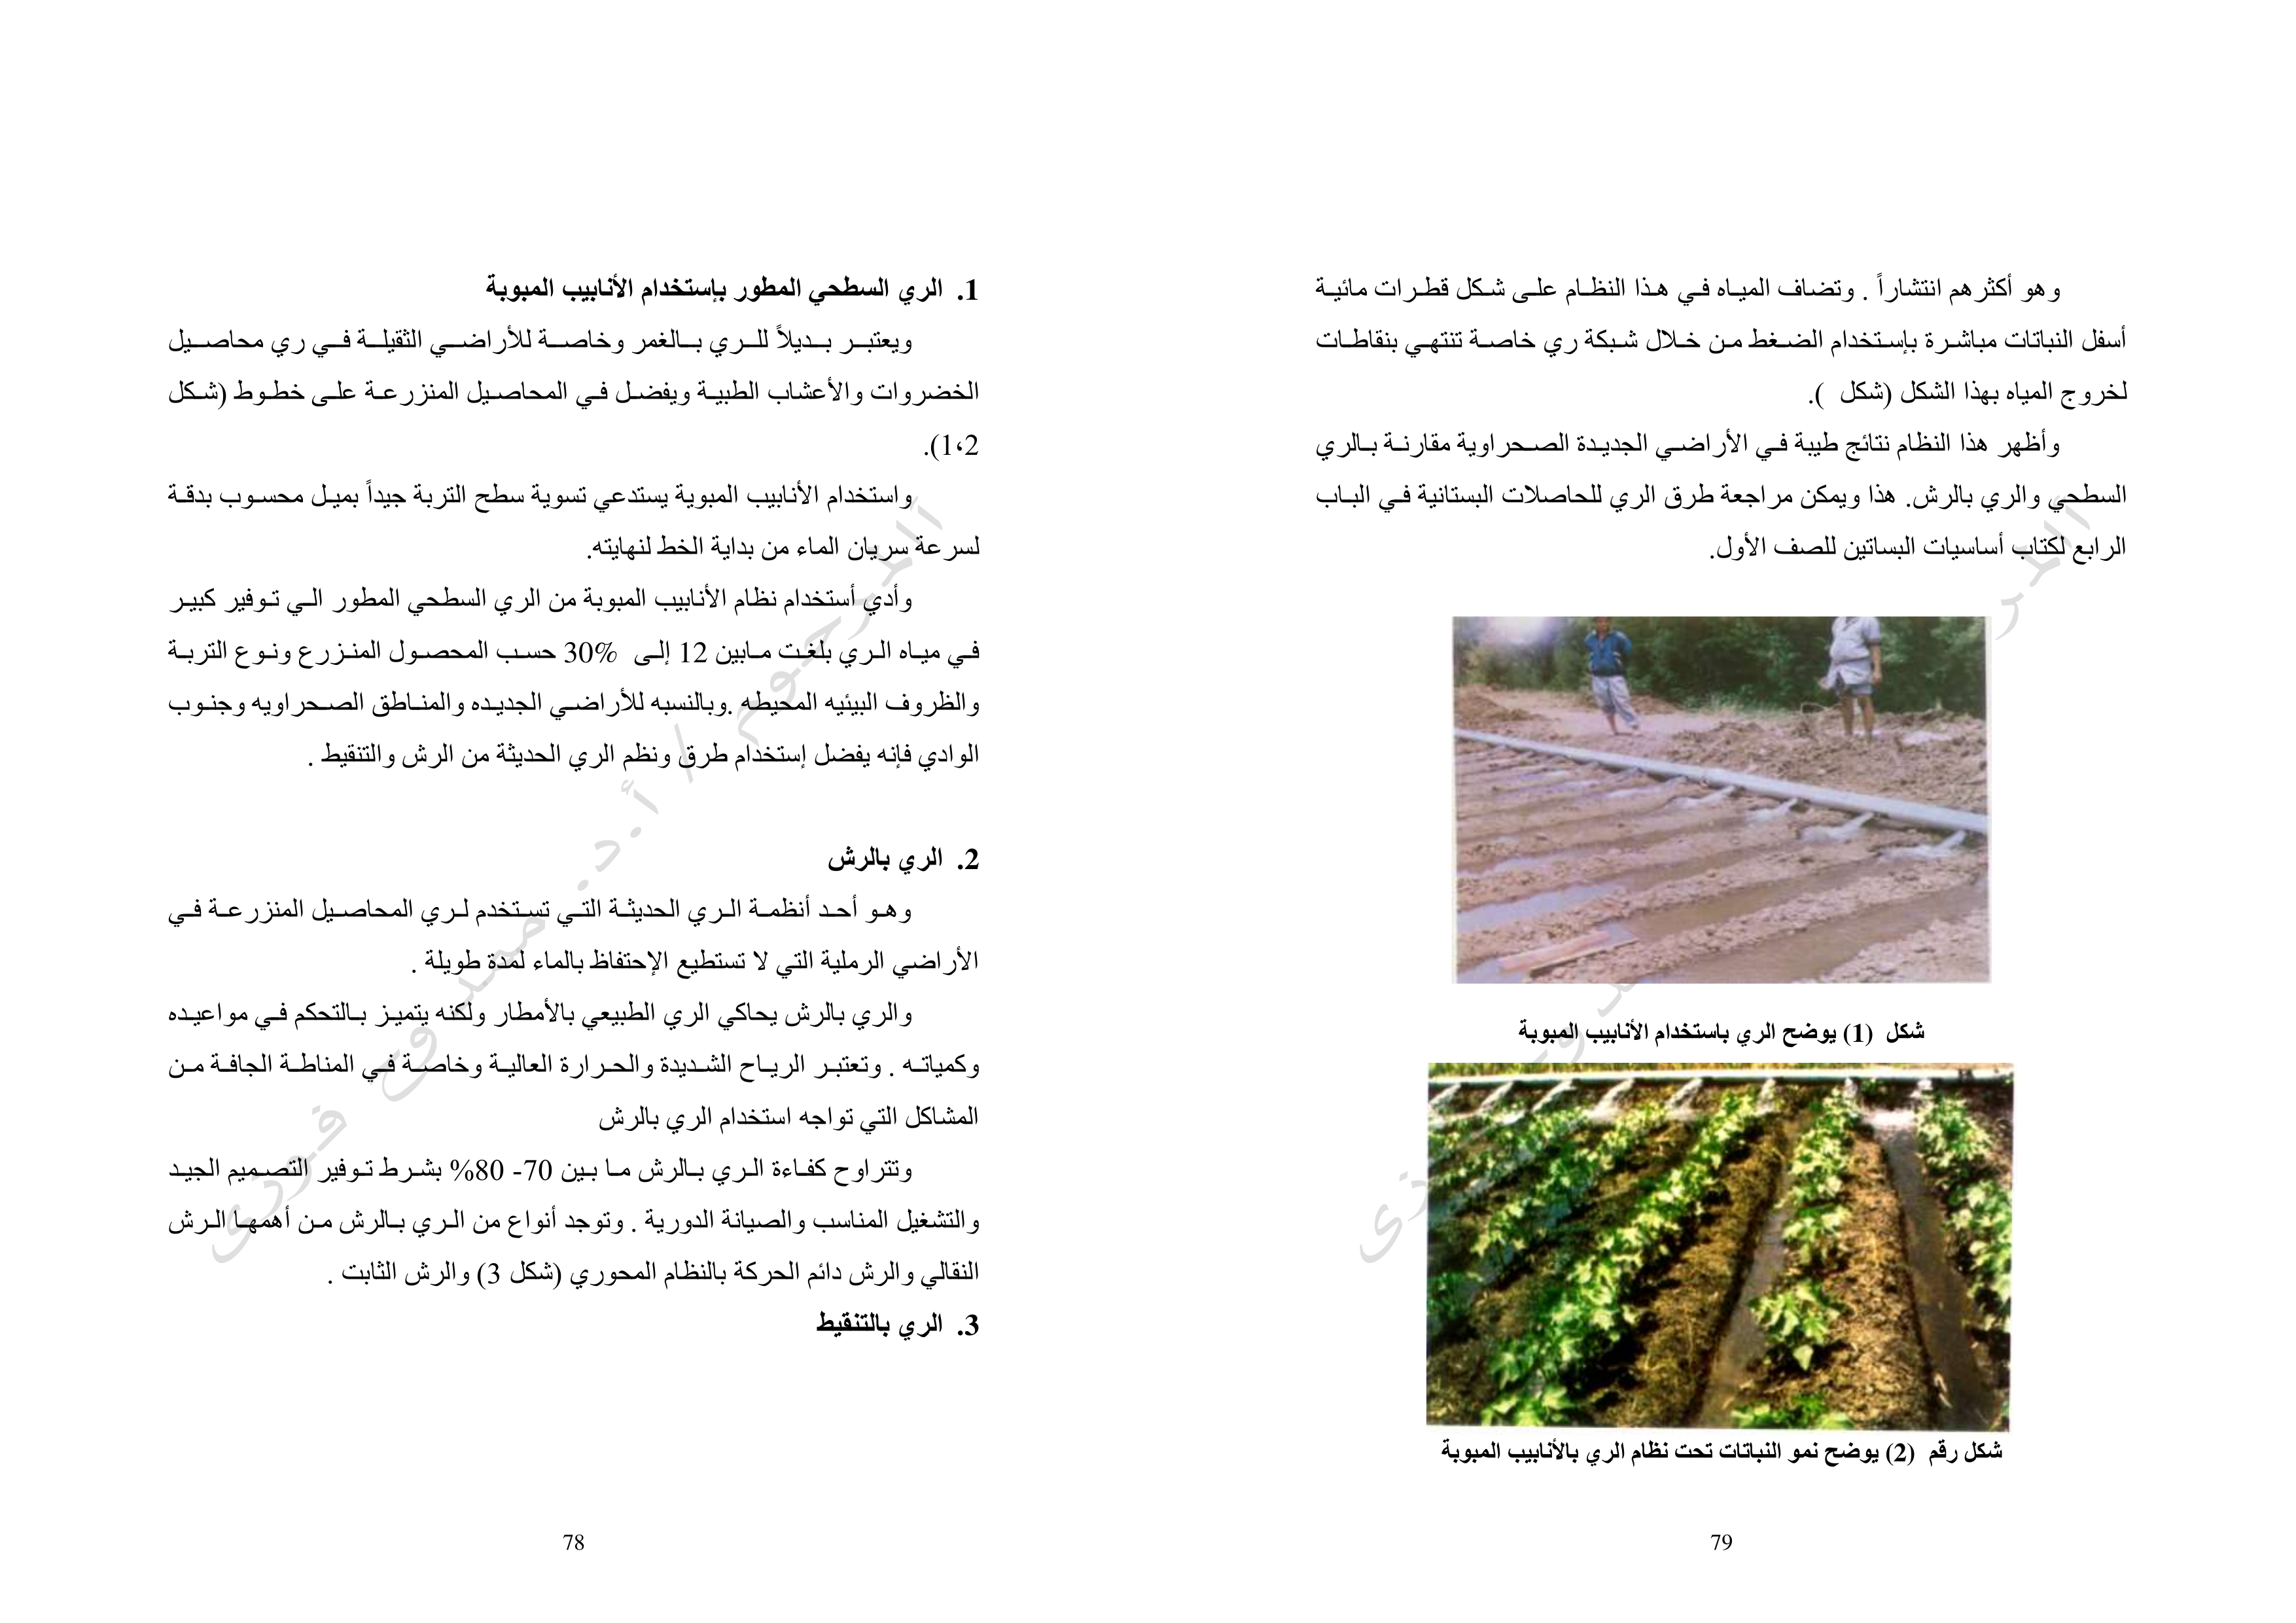 1. الري السطحي المطور بإستخدام الأنابيب المبوبة
ويعتبر بديلاً للري بالغمر وخاصة للأراضي الثقيلة في ري محاصيل
الخضروات والأعشاب الطبية ويفضل في المحاصيل المنزرعة على خطوط (شكل
1،2).
واستخدام الأنابيب المبوبة يستدعي تسوية سطح التربة جيداً بميل محسوب بدقة
لسرعة سريان الماء من بداية الخط لنهايته.
وأدي أستخدام نظام الأنابيب المبوبة من الري السطحي المطور الي توفير كبير
في مياه الري بلغت مابين 12 إلى 30% حسب المحصول المنزرع ونوع التربة
والظروف البيئيه المحيطه .وبالنسبه للأراضي الجديده والمناطق الصحراويه وجنوب
الوادي فإنه يفضل إستخدام طرق ونظم الري الحديثة من الرش والتنقيط .
2. الري بالرش
وهو أحد أنظمة الري الحديثة التي تستخدم لري المحاصيل المنزرعة في
الأراضي الرملية التي لا تستطيع الإحتفاظ بالماء لمدة طويلة .
والري بالرش يحاكي الري الطبيعي بالأمطار ولكنه يتميز بالتحكم في مواعيده
وكمياته . وتعتبر الرياح الشديدة والحرارة العالية وخاصة في المناطة الجافة من
المشاكل التي تواجه استخدام الري بالرش
وتتراوح كفاءة الري بالرش ما بين 70- 80% بشرط توفير التصميم الجيد
والتشغيل المناسب والصيانة الدورية . وتوجد أنواع من الري بالرش من أهمها الرش
النقالي والرش دائم الحركة بالنظام المحوري (شكل 3) والرش الثابت .
3. الري بالتنقيط
78
وهو أكثرهم انتشاراً . وتضاف المياه في هذا النظام على شكل قطرات مائية
أسفل النباتات مباشرة بإستخدام الضغط من خلال شبكة ري خاصة تنتهي بنقاطات
لخروج المياه بهذا الشكل (شكل ).
وأظهر هذا النظام نتائج طيبة في الأراضي الجديدة الصحراوية مقارنة بالري
السطحي والري بالرش. هذا ويمكن مراجعة طرق الري للحاصلات البستانية في الباب
الرابع لكتاب أساسيات البساتين للصف الأول.
شكل (1) يوضح الري باستخدام الأنابيب المبوبة
شكل رقم (2) يوضح نمو النباتات تحت نظام الري بالأنابيب المبوبة
79
المرحوم / أ.د. ممدوح فوزى